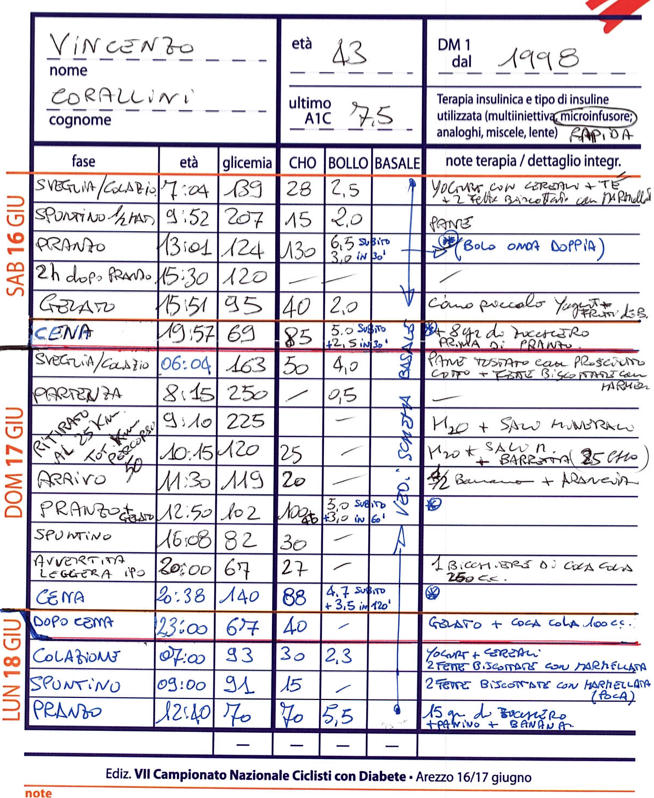 VINCENZO
nome
CORALLINI
cognome
età 43
ultimo A1C 7,5
DM 1 dal 1998
Terapia insulinica e tipo di insuline
utilizzata (multiiniettiva, microinfusore;
analoghi, miscele, lente) RAPIDA
fase età glicemia CHO BOLLO BASALE note terapia / dettaglio integr.
SAB 16 GIU
SVEGLIA/COLAZIO 7:04 139 28 2,5 YOGURT CON CEREALI + TÈ
+ 2 FETTE BISCOTTATE CON MARMELLATA
SPUNTINO 1/2 MAT 9:52 207 15 2,0 PANE
PRANZO 13:01 124 130 6,5 SUBITO
3,0 in 30' (BOLO ONDA DOPPIA)
2h dopo PRANZO 15:30 120 — — —
GELATO 15:51 95 40 2,0 cono piccolo Yogurt +
FRUTTI di B.
CENA 19:57 69 85 5,0 SUBITO
+2,5 in 30' + 8 gr di ZUCCHERO
PRIMA DI PRANZO.
VEDI SCHEMA BASALE
DOM 17 GIU
SVEGLIA/COLAZIO 06:04 163 50 4,0 PANE TOSTATO CON PROSCIUTTO
COTTO + FETTE BISCOTTATE CON
PARTENZA 8:15 250 — 0,5 —
RITIRATO
AL 25 Km
TOT. Km
PERCORSO
50
9:10 225 H2O + SALI MINERALI
10:15 120 25 H2O + SALI M.
+ BARRETTA (25 CHO)
ARRIVO 11:30 119 20 1/2 Banana + ARANCIA
PRANZO + GELATO 12:50 102 100 5,0 SUBITO
+3,0 in 60'
SPUNTINO 16:08 82 30 —
AVVERTITA
LEGGERA IPO 20:00 67 27 — 1 BICCHIERE DI COCA COLA
250 cc.
CENA 20:38 140 88 4,7 SUBITO
+ 3,5 in 120'
DOPO CENA 23:00 67 40 — GELATO + COCA COLA 100 cc.
LUN 18 GIU
COLAZIONE 07:00 93 30 2,3 YOGURT + CEREALI
2 FETTE BISCOTTATE CON MARMELLATA
SPUNTINO 09:00 91 15 — 2 FETTE BISCOTTATE CON MARMELLATA
(POCA)
PRANZO 12:40 70 70 5,5 15 gr di ZUCCHERO
+ PANINO + BANANA
— — —
Ediz. VII Campionato Nazionale Ciclisti con Diabete • Arezzo 16/17 giugno
note